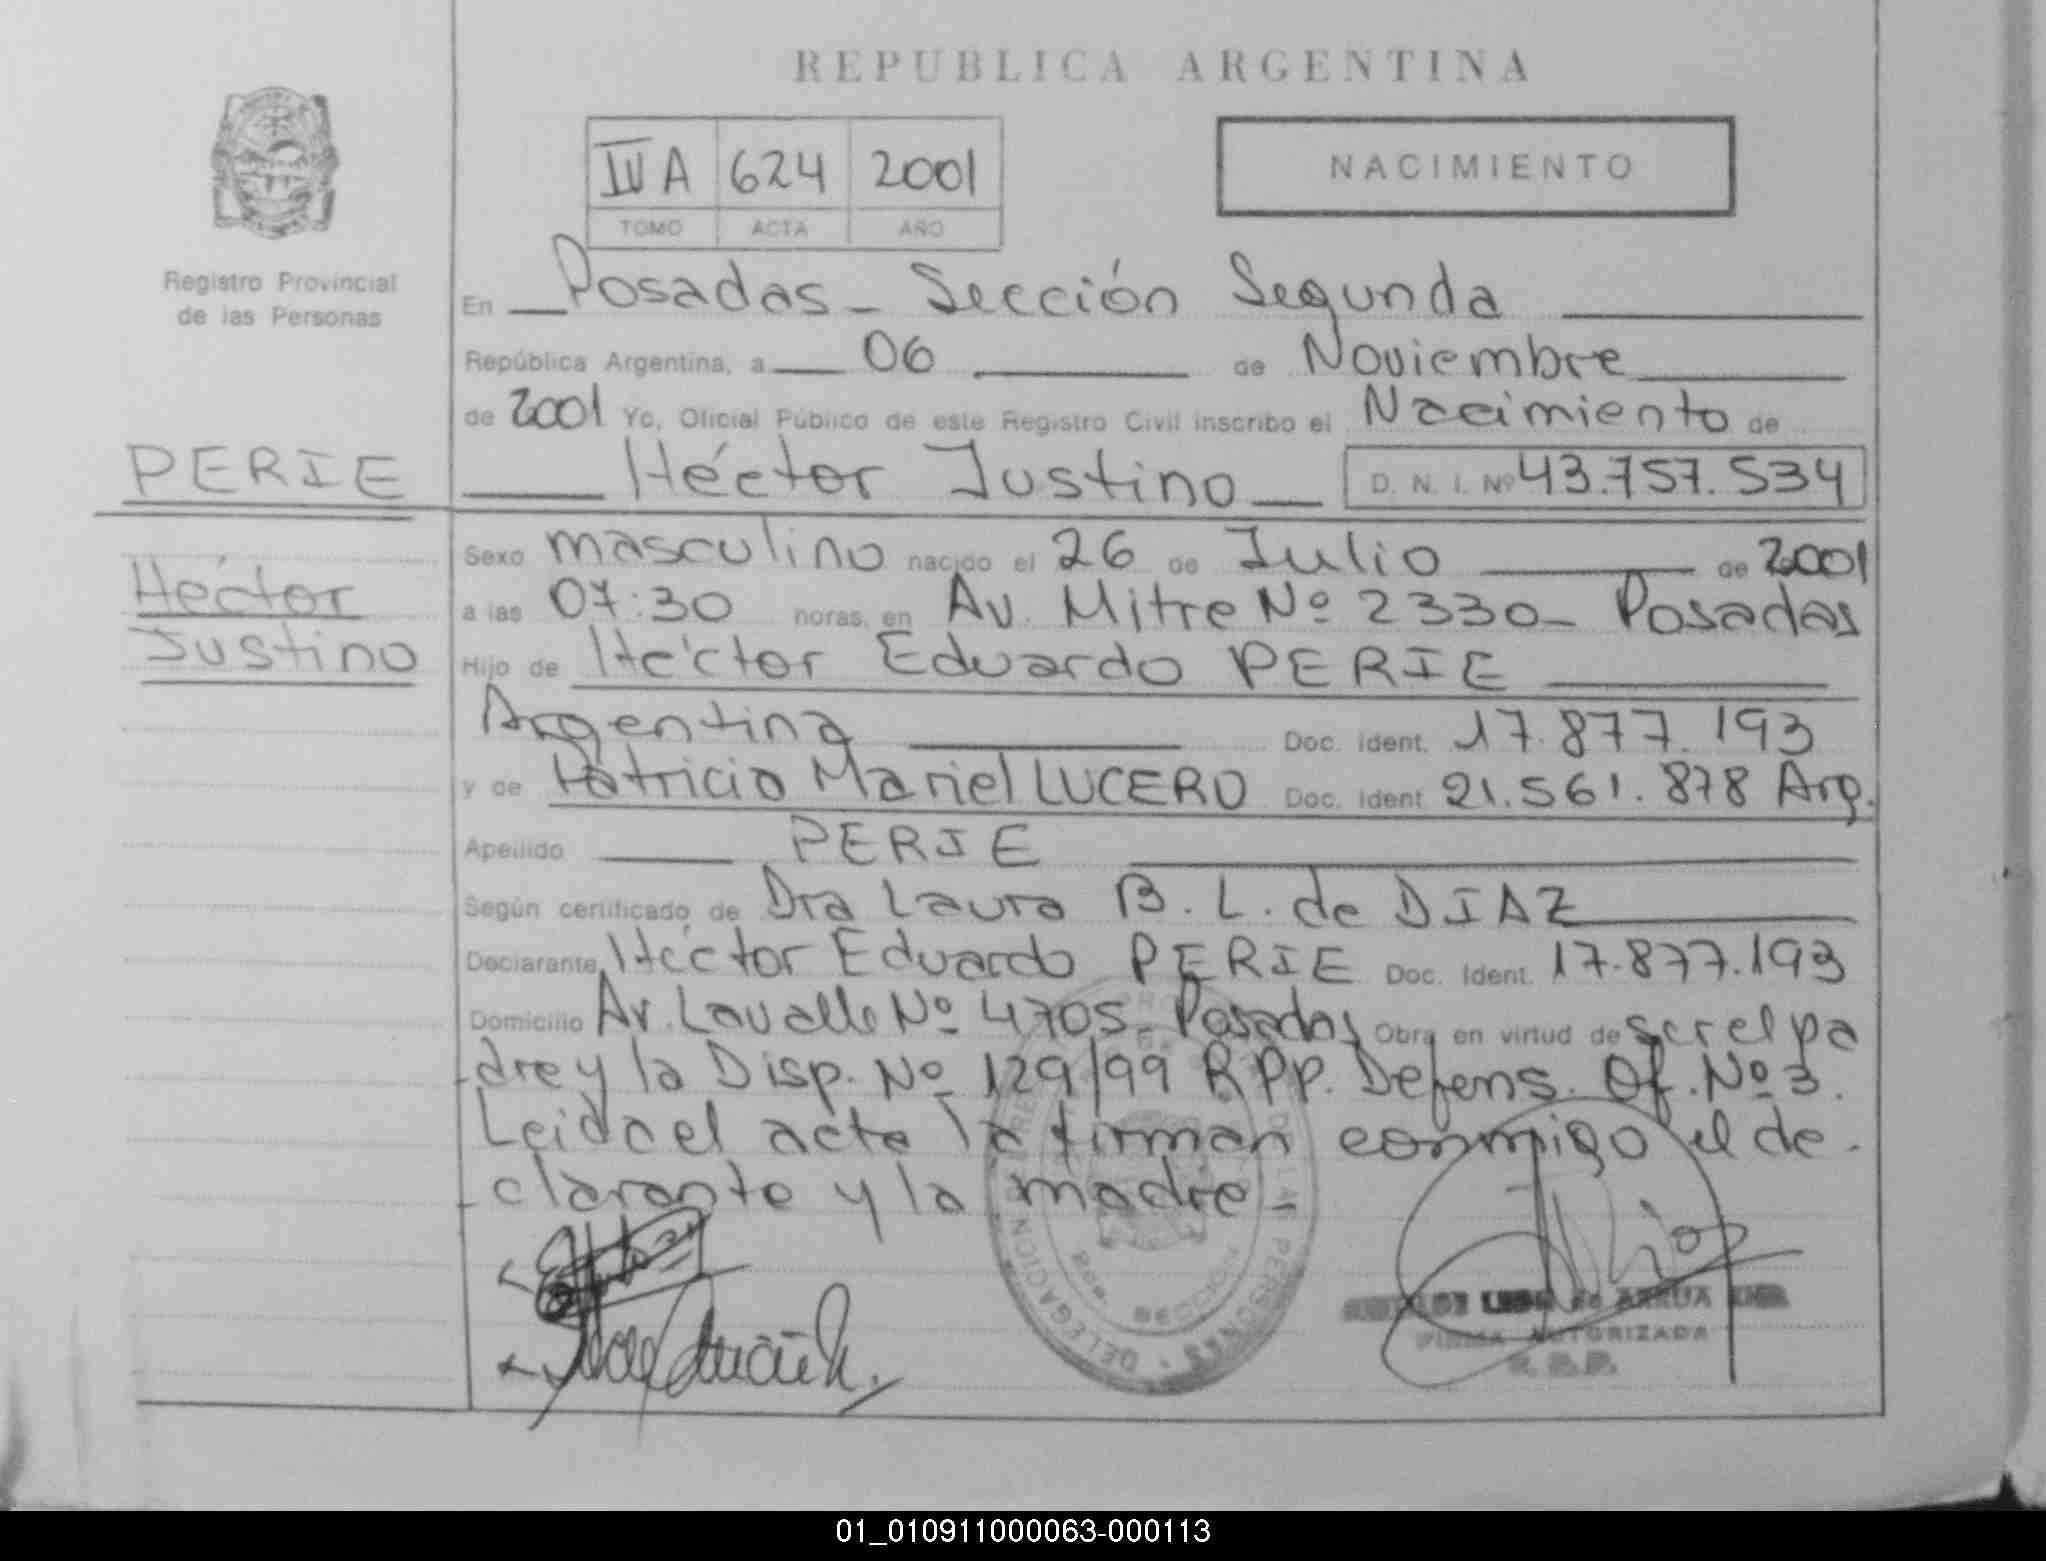 REPUBLICA ARGENTINA
IV A 624 2001
TOMO ACTA AÑO
NACIMIENTO
Registro Provincial
de las Personas
En Posadas - Sección Segunda
República Argentina, a 06 de Noviembre
de 2001 Yo, Oficial Público de este Registro Civil inscribo el Nacimiento de
PERIE
Héctor Justino D. N. I. Nº 43.757.534
Héctor
Justino
Sexo masculino nacido el 26 de Julio de 2001
a las 07:30 horas, en Av. Mitre Nº 2330 - Posadas
Hijo de Héctor Eduardo PERIE
Argentina Doc. Ident. 17.877.193
y de Patricia Mariel LUCERO Doc. Ident 21.561.878 Arg.
Apellido PERIE
Según certificado de Dra Laura B. L. de DIAZ
Declarante Héctor Eduardo PERIE Doc. Ident. 17.877.193
Domicilio Av. Lavalle Nº 4705 - Posadas Obra en virtud de ser el pa
dre y la Disp. Nº 129/99 RPP. Defens. Of. Nº 3.
Leida el acta la firman conmigo el de -
- clarante y la madre -
DELEGACION
2da. SECCION
DE LAS PERSONAS
de ARRUA
FIRMA AUTORIZADA
R. P. P.
01_010911000063-000113